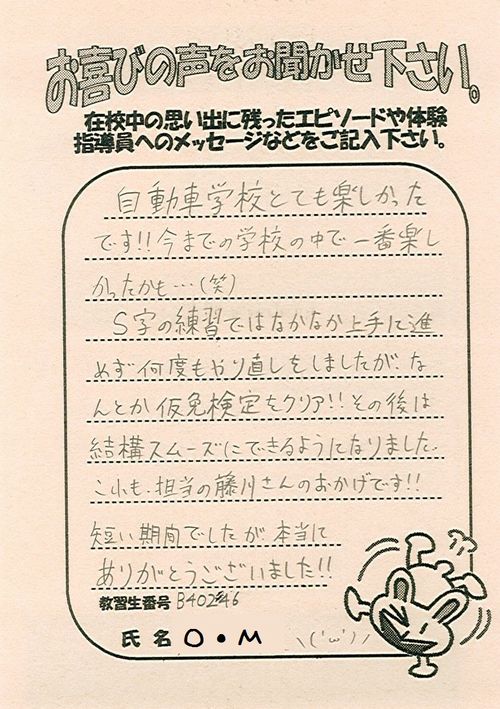 お喜びの声をお聞かせ下さい。
在校中の思い出に残ったエピソードや体験
指導員へのメッセージなどをご記入下さい。
自動車学校とても楽しかった
です!!今までの学校の中で一番楽し
かったかも…(笑)
S字の練習ではなかなか上手に進
めず何度もやり直しをしましたが、な
んとか仮免検定をクリア!!その後は
結構スムーズにできるようになりました。
これも、担当の藤川さんのおかげです!!
短い期間でしたが本当に
ありがとうございました!!
教習生番号 B40246
氏名 O・M \('ω')/